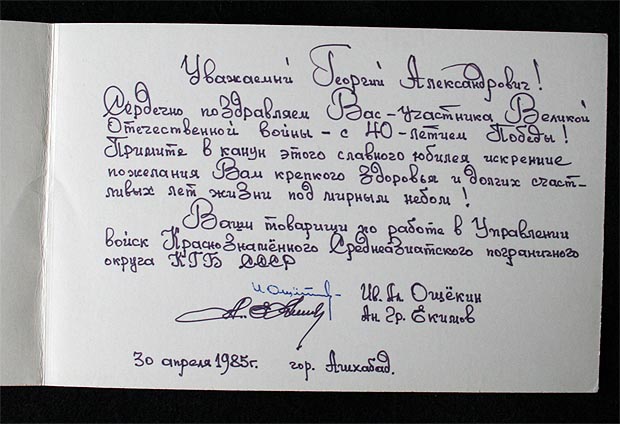 Уважаемый Георгий Александрович!
Сердечно поздравляем Вас – участника Великой
Отечественной войны – с 40-летием Победы!
Примите в канун этого славного юбилея искренние
пожелания Вам крепкого здоровья и долгих счаст-
ливых лет жизни под мирным небом!
Ваши товарищи по работе в Управлении
войск Краснознамённого Среднеазиатского пограничного
округа КГБ СССР
Ив. Ал. Ощёкин
Ан. Гр. Екимов
30 апреля 1985г. гор. Ашхабад.